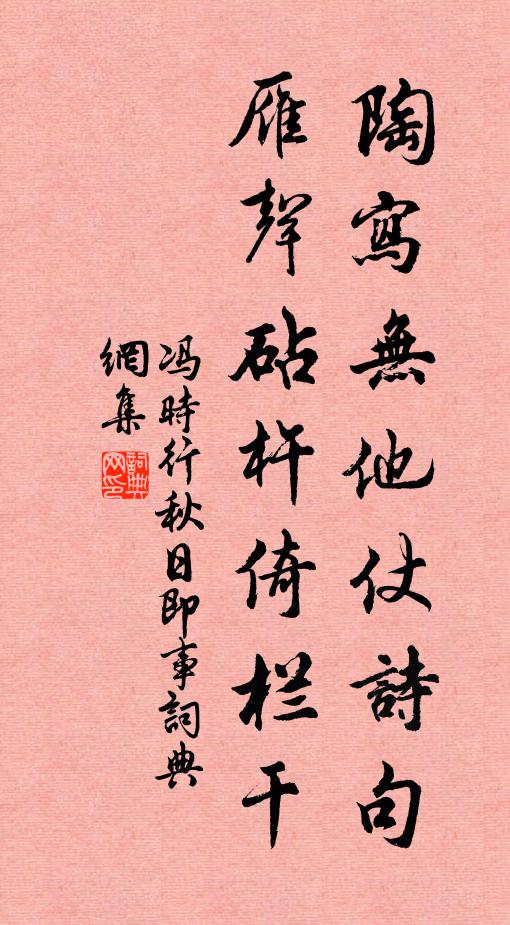 陶寫無他仗詩句
雁聲砧杵倚栏干
冯時行秋日即事詞典
網集
詞典网印